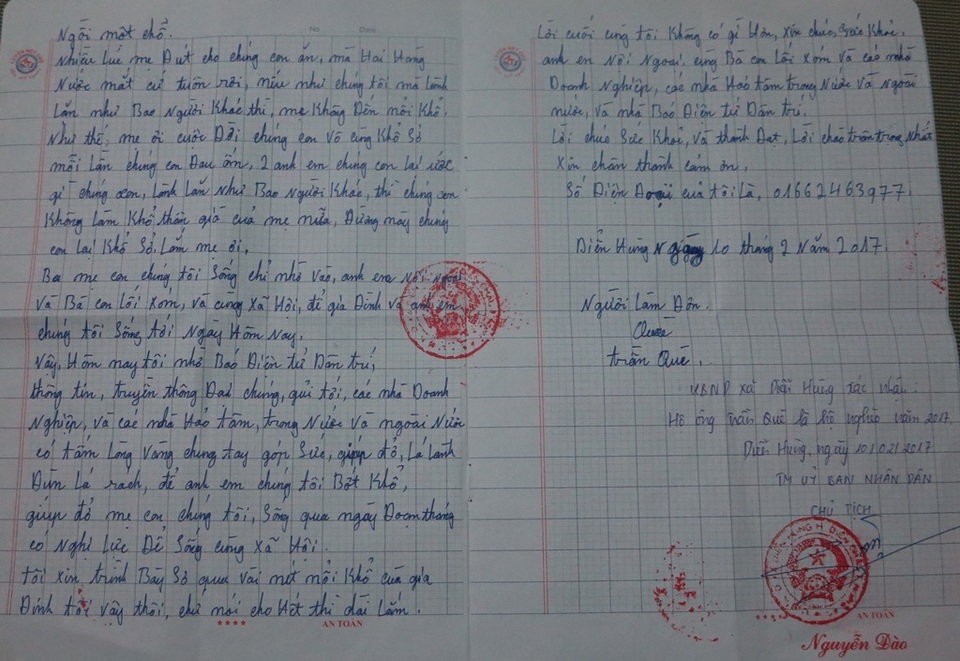 Ngồi một chổ.
Nhiều Lúc mẹ Đút cho chúng con ăn, mà Hai Hàng
Nước mắt cứ tuôn rơi, nếu như chúng tôi mà Lành
Lặn như Bao Người Khác thì, mẹ Không Đến nỗi Khổ.
Như thế, mẹ ơi cuộc Đời chúng con Vô cùng Khổ Sở
mỗi Lần chúng con Đau ốm, 2 anh em chúng con lại ước
gì chúng con, Lành Lặn như Bao Người Khác, thì chúng con
Không Làm Khổ thân già của mẹ nữa, Đường này chúng
con Lại Khổ Sở Lắm mẹ ơi,
Ba mẹ con chúng tôi Sống chỉ nhờ vào, anh em Nội Ngoại
Và Bà con Lối Xóm, và cùng xã Hội, để gia Đình và anh em
chúng tôi Sống tới Ngày Hôm Nay.
Vậy, Hôm nay tôi nhờ Báo Điện tử Dân trí,
thông tin, truyền thông Đại chúng, gửi tới, các nhà Doanh
Nghiệp, và các nhà Hảo tâm, trong Nước và ngoài Nước
có tấm Lòng Vàng chung tay góp Sức, giúp đở, Lá Lành
Đùm Lá rách, để anh em chúng tôi Bớt Khổ,
giúp đở mẹ con chúng tôi, Sống qua ngày Đoạn tháng
có Nghị Lực Để Sống cùng xã Hội.
tôi xin trình Bày Sơ qua vài nét nổi Khổ của gia
Đình tôi vậy thôi, chứ nói cho Hết thì dài Lắm.
AN TOÀN
Lời cuối cùng tôi Không có gì Hơn, xin chúc, Sức Khỏe,
anh em Nội Ngoại, cùng Bà con Lối Xóm Và các nhà
Doanh Nghiệp, các nhà Hảo tâm trong Nước Và Ngoài
nước, và nhà Báo Điện tử Dân trí.
Lời chúc Sức Khỏe, Và thành Đạt, Lời chào trân trọng Nhất
Xin chân thành cảm ơn,
Số Điện Đoại của tôi Là, 01662463977.
Diễn Hùng Ngày 10 tháng 2 Năm 2017.
Người Làm Đơn.
Quế
trần Quế.
UBND xã Diễn Hùng xác nhận:
Hộ ông trần Quế là hộ nghèo năm 2017
Diễn Hùng, ngày 10/02/2017
TM UỶ BAN NHÂN DÂN
CHỦ TỊCH
AN TOÀN
Nguyễn Đào